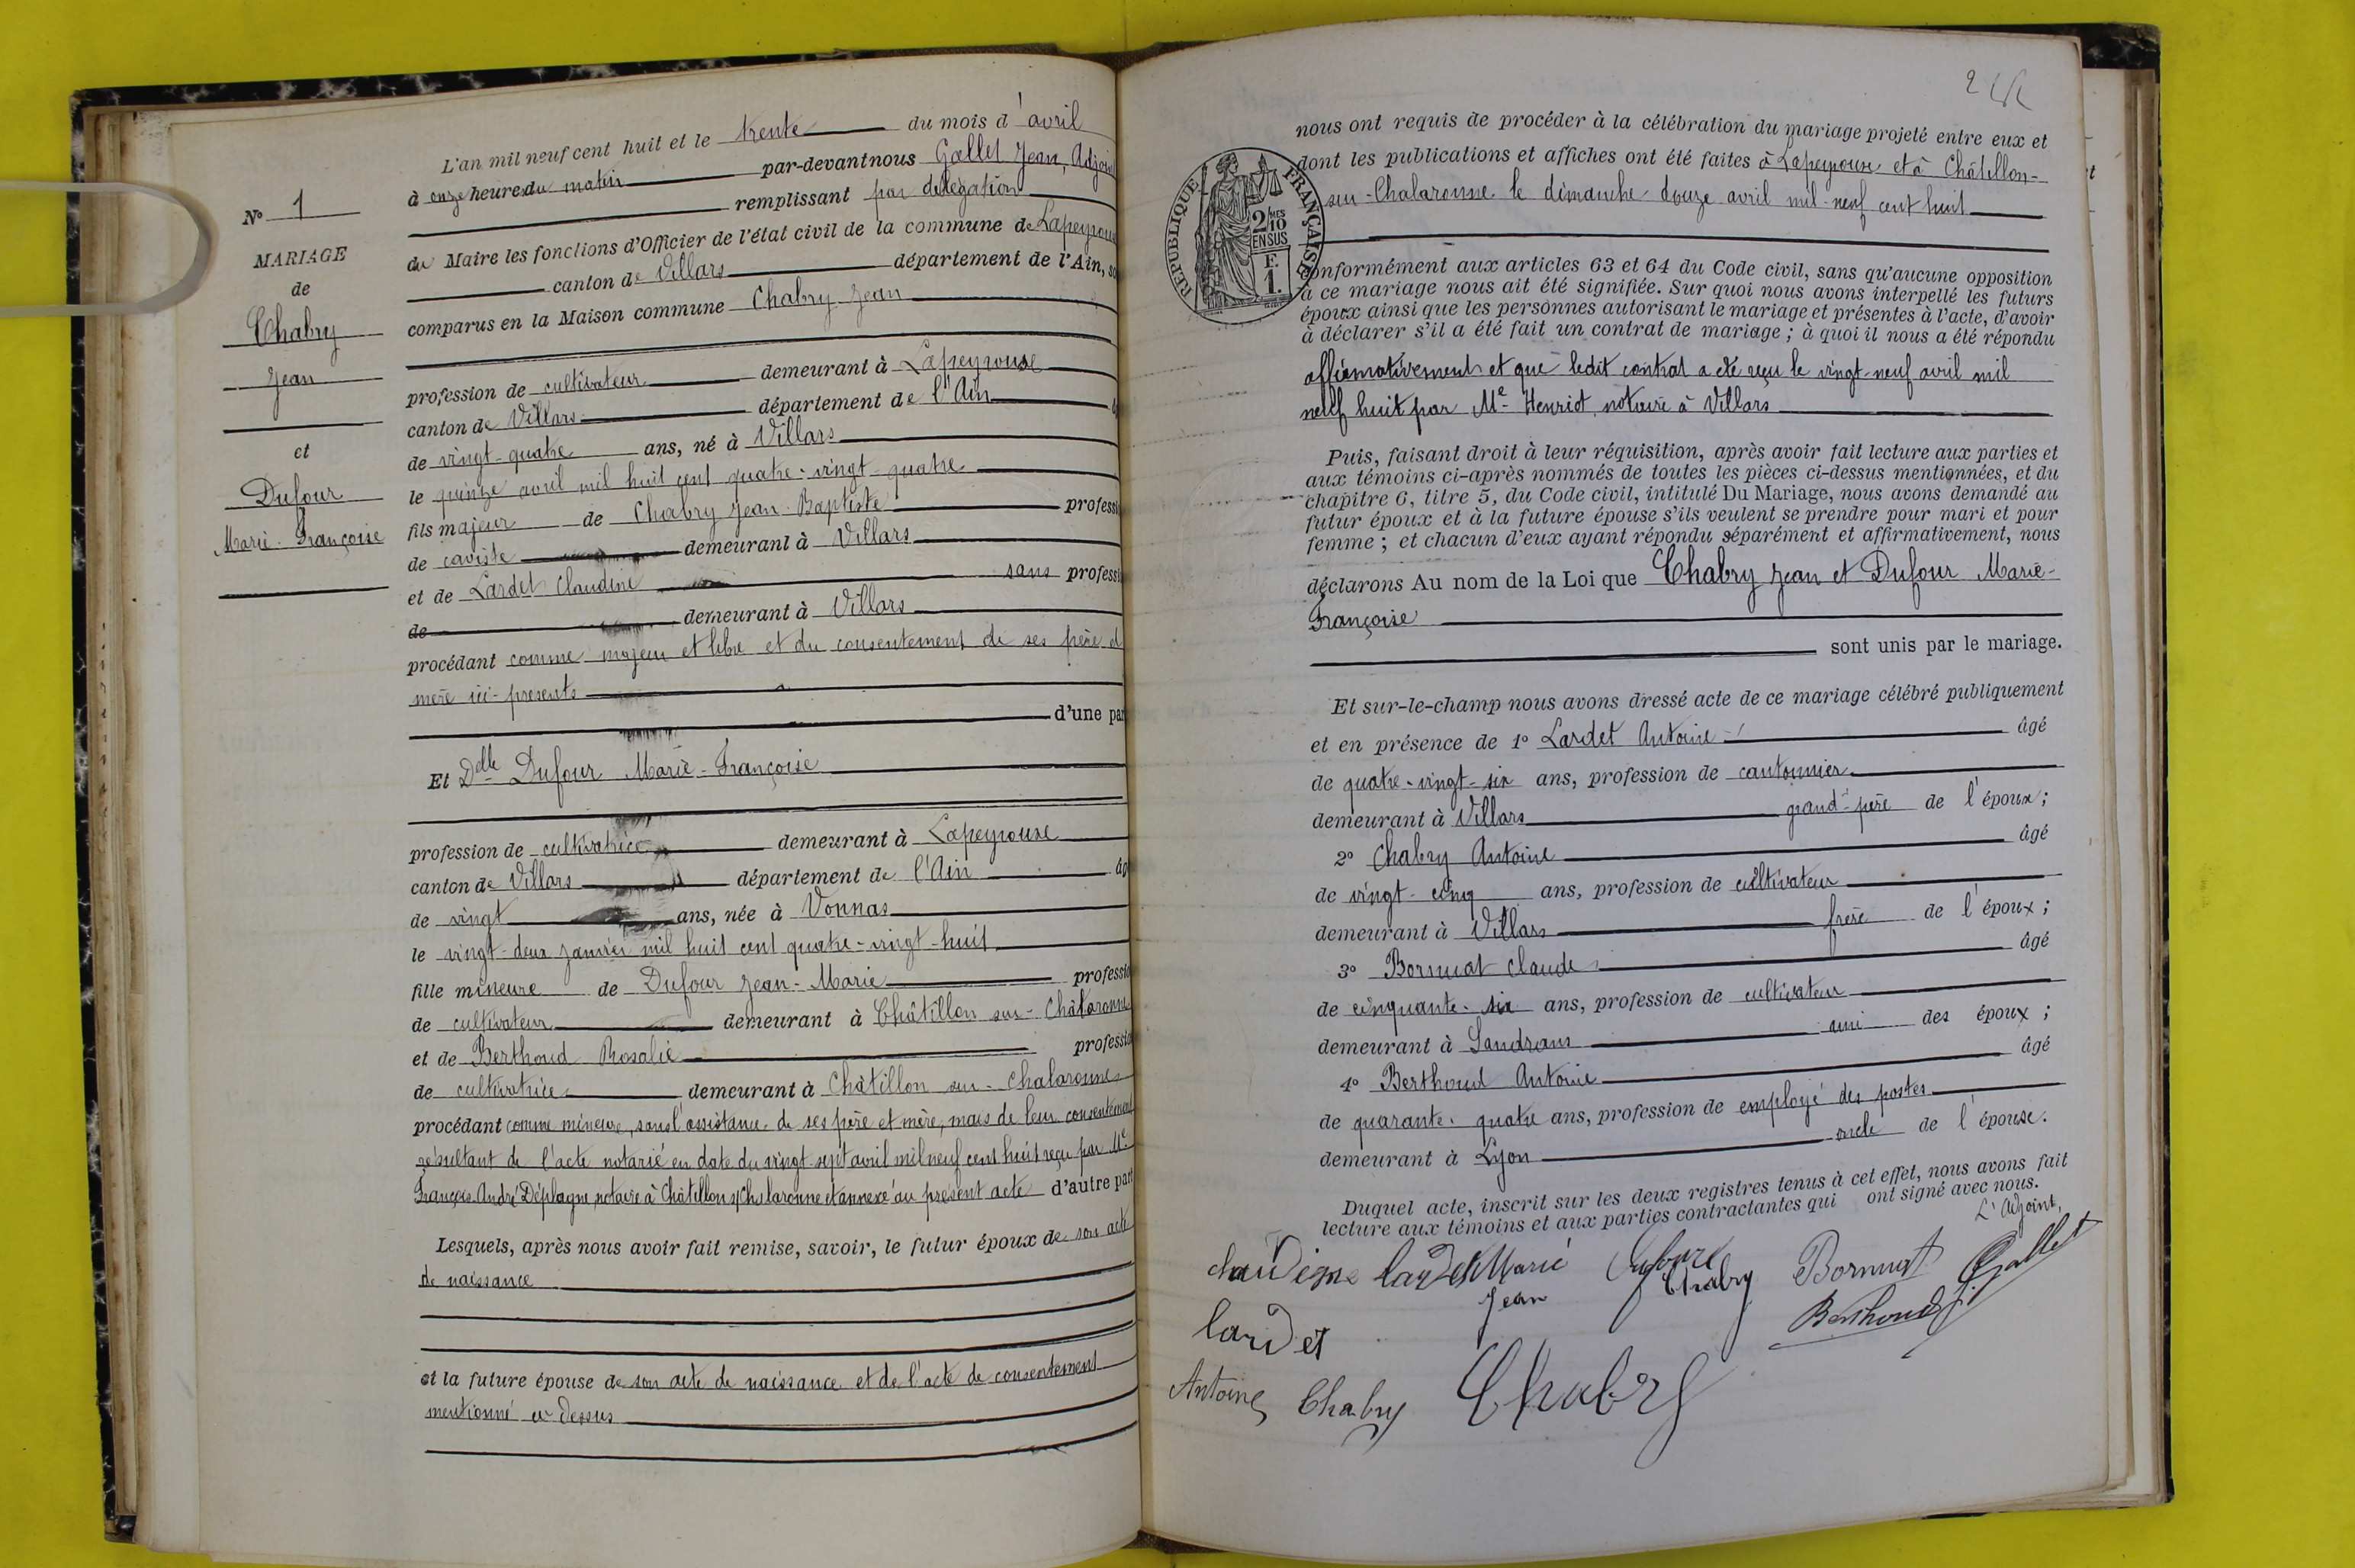 N° 1
MARIAGE
de
Chabry
Jean
et
Dufour
Marie-Françoise
L'an mil neuf cent huit et le trente du mois d'avril
à onze heure du matin par-devant nous Gallet Jean, Adjoint
remplissant par délégation
du Maire les fonctions d'Officier de l'état civil de la commune de Lapeyrouse
canton de Villars département de l'Ain, so
comparus en la Maison commune Chabry Jean
profession de cultivateur demeurant à Lapeyrouse
canton de Villars département de l'Ain
de vingt-quatre ans, né à Villars
le quinze avril mil huit cent quatre-vingt-quatre
fils majeur de Chabry Jean-Baptiste professi
de caviste demeurant à Villars
et de Lardet Claudine sans professi
de demeurant à Villars
procédant comme majeur et libre et du consentement de ses père et
mère ici-présents
d'une par
Et Delle Dufour Marie-Françoise
profession de cultivatrice demeurant à Lapeyrouse
canton de Villars département de l'Ain âg
de vingt ans, née à Vonnas
le vingt-deux janvier mil huit cent quatre-vingt-huit
fille mineure de Dufour Jean-Marie professio
de cultivateur demeurant à Châtillon sur-Chalaronne
et de Berthoud Rosalie professio
de cultivatrice demeurant à Châtillon sur-Chalaronne
procédant comme mineure, sans l'assistance de ses père et mère, mais de leur consentement
résultant de l'acte notarié en date du vingt-sept avril mil neuf cent huit reçu par Me
François-André Déplagne, notaire à Châtillon s/Chalaronne et annexé au présent acte d'autre part
Lesquels, après nous avoir fait remise, savoir, le futur époux de son acte
de naissance
et la future épouse de son acte de naissance et de l'acte de consentement
mentionné ci-dessus
nous ont requis de procéder à la célébration du mariage projeté entre eux et
dont les publications et affiches ont été faites à Lapeyrouse et à Châtillon-
sur-Chalaronne le dimanche douze avril mil-neuf cent huit
RÉPUBLIQUE FRANÇAISE
2/10 MES
EN SUS
F.
1.
conformément aux articles 63 et 64 du Code civil, sans qu'aucune opposition
à ce mariage nous ait été signifiée. Sur quoi nous avons interpellé les futurs
époux ainsi que les personnes autorisant le mariage et présentes à l'acte, d'avoir
à déclarer s'il a été fait un contrat de mariage ; à quoi il nous a été répondu
affirmativement et que ledit contrat a été reçu le vingt-neuf avril mil
neuf huit par Me Henriot, notaire à Villars
Puis, faisant droit à leur réquisition, après avoir fait lecture aux parties et
aux témoins ci-après nommés de toutes les pièces ci-dessus mentionnées, et du
chapitre 6, titre 5, du Code civil, intitulé Du Mariage, nous avons demandé au
futur époux et à la future épouse s'ils veulent se prendre pour mari et pour
femme ; et chacun d'eux ayant répondu séparément et affirmativement, nous
déclarons Au nom de la Loi que Chabry Jean et Dufour Marie-
Françoise
sont unis par le mariage.
Et sur-le-champ nous avons dressé acte de ce mariage célébré publiquement
et en présence de 1° Lardet Antoine âgé
de quatre-vingt-six ans, profession de cantonnier
demeurant à Villars grand-père de l'époux ;
2° Chabry Antoine âgé
de vingt-cinq ans, profession de cultivateur
demeurant à Villars frère de l'époux ;
3° Bornuat Claude âgé
de cinquante-six ans, profession de cultivateur
demeurant à Sandrans ami des époux ;
4° Berthoud Antoine âgé
de quarante-quatre ans, profession de employé des postes
demeurant à Lyon oncle de l'épouse.
Duquel acte, inscrit sur les deux registres tenus à cet effet, nous avons fait
lecture aux témoins et aux parties contractantes qui ont signé avec nous.
L'Adjoint,
Claudine Lardet Marie Dufour Bornuat J. Gallet
Jean Chabry Berthoud
Lardet
Antoine Chabry Chabry